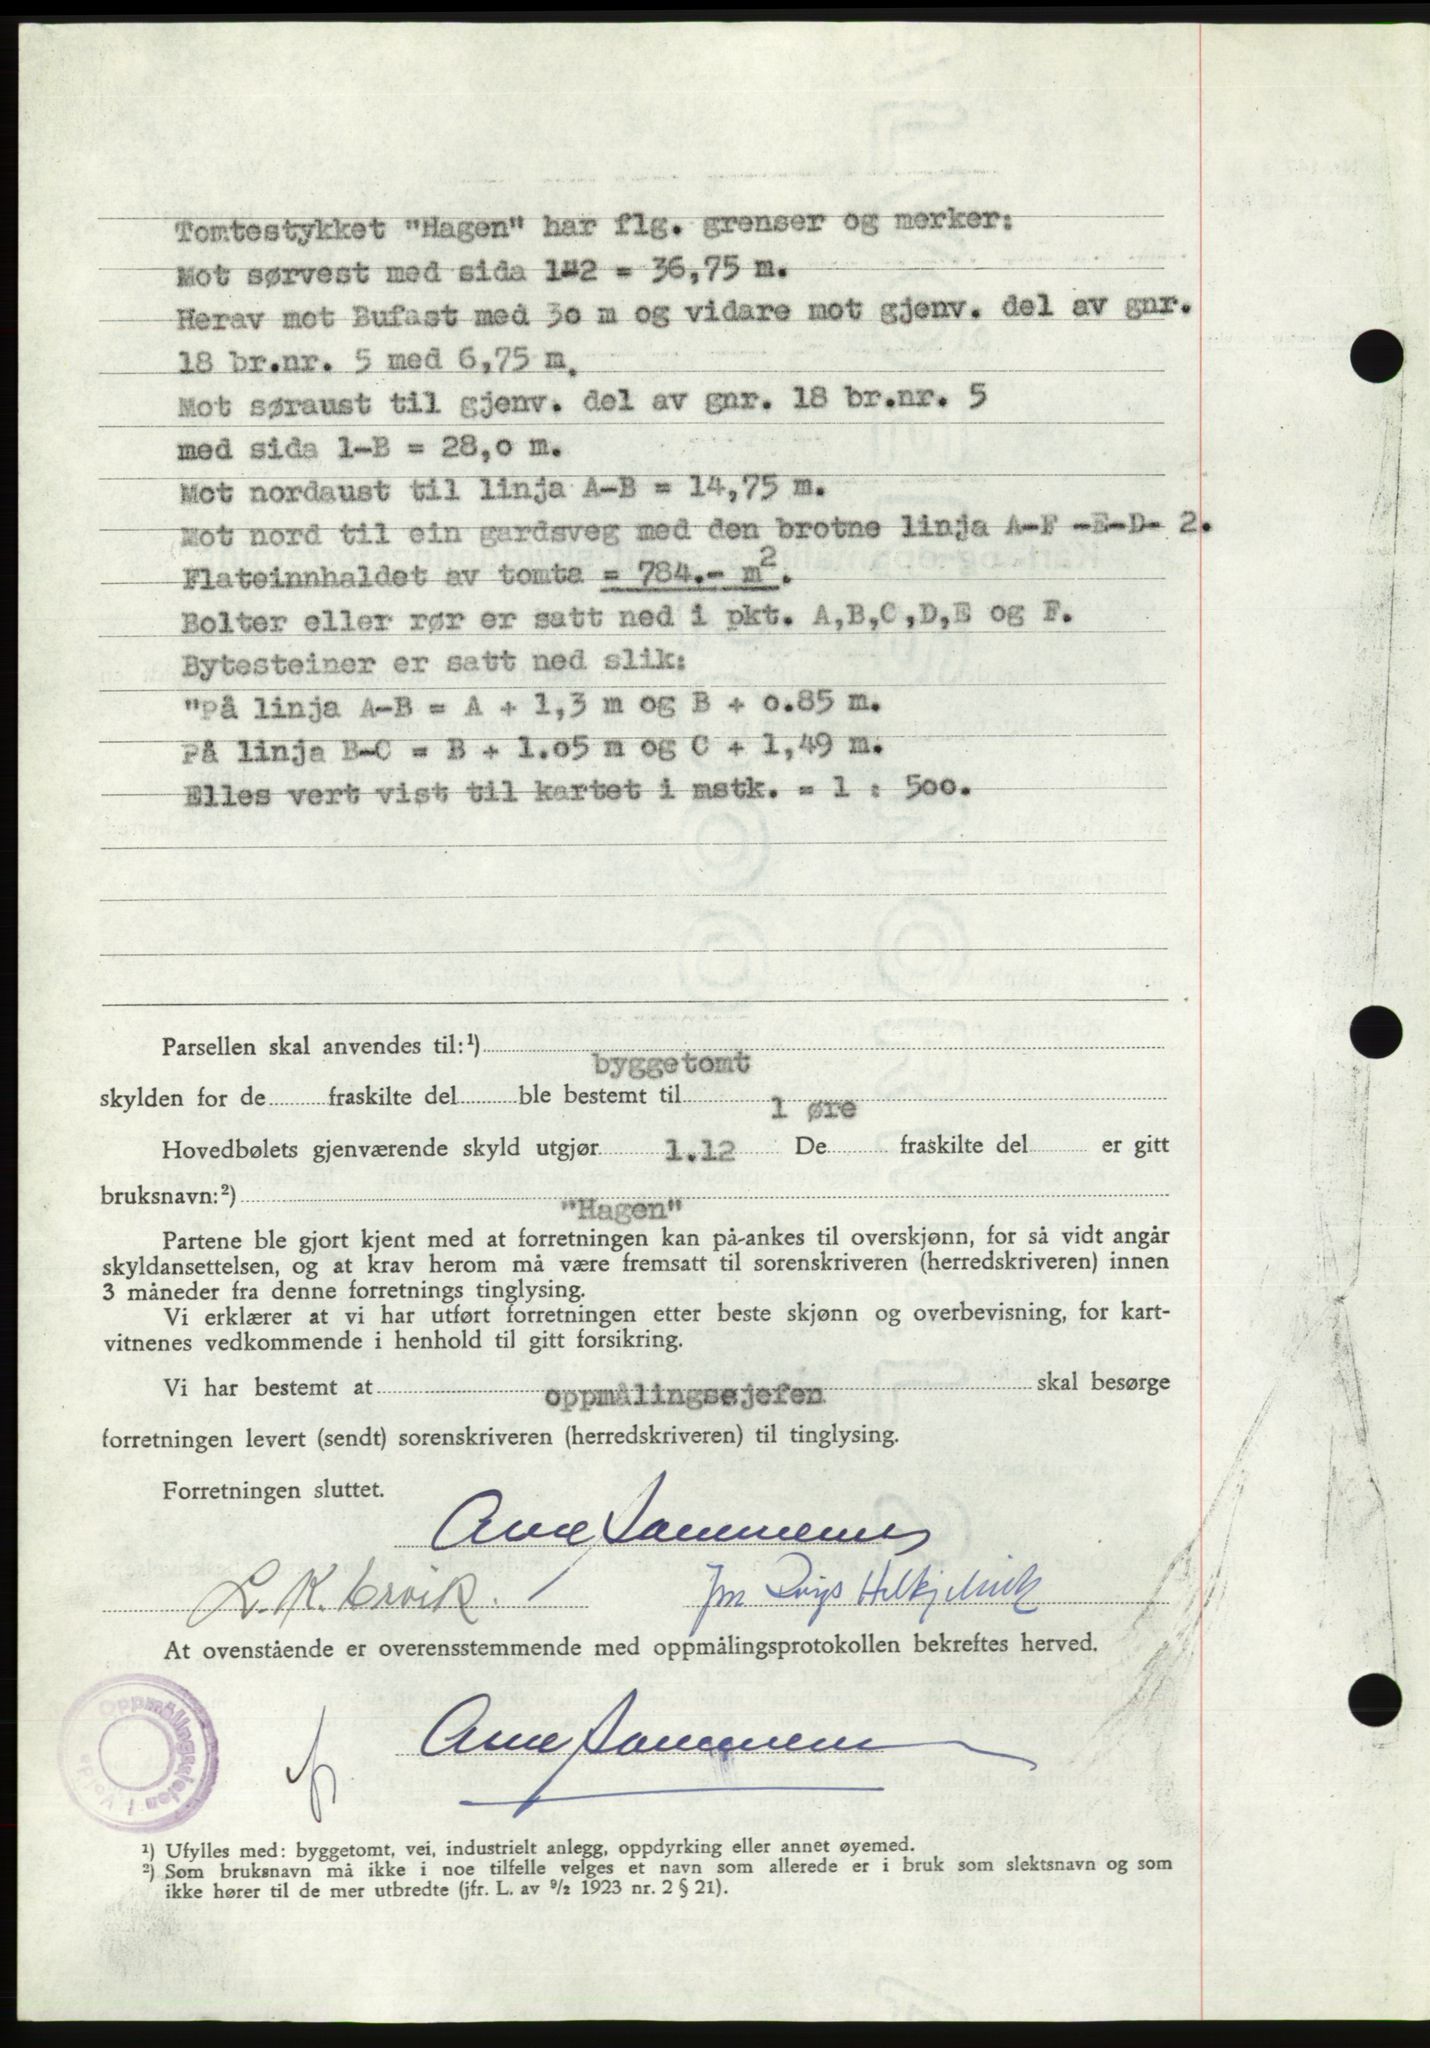 Tomtestykket "Hagen" har flg. grenser og merker:
Mot sørvest med sida 1-2 = 36,75 m.
Herav mot Bufast med 30 m og vidare mot gjenv. del av gnr.
18 br.nr. 5 med 6,75 m.
Mot søraust til gjenv. del av gnr. 18 br.nr. 5
med sida 1-B = 28,0 m.
Mot nordaust til linja A-B = 14,75 m.
Mot nord til ein gardsveg med den brotne linja A-F -E-D- 2.
Flateinnhaldet av tomta = 784.- m².
Bolter eller rør er satt ned i pkt. A,B,C,D,E og F.
Bytesteiner er satt ned slik:
"På linja A-B = A + 1,3 m og B + 0.85 m.
På linja B-C = B + 1.05 m og C + 1,49 m.
Elles vert vist til kartet i mstk. = 1 : 500.
Parsellen skal anvendes til:¹) byggetomt
skylden for de fraskilte del ble bestemt til 1 øre
Hovedbølets gjenværende skyld utgjør 1.12 De fraskilte del er gitt
bruksnavn:²) "Hagen"
Partene ble gjort kjent med at forretningen kan på-ankes til overskjønn, for så vidt angår
skyldansettelsen, og at krav herom må være fremsatt til sorenskriveren (herredskriveren) innen
3 måneder fra denne forretnings tinglysing.
Vi erklærer at vi har utført forretningen etter beste skjønn og overbevisning, for kart-
vitnenes vedkommende i henhold til gitt forsikring.
Vi har bestemt at oppmålingssjefen skal besørge
forretningen levert (sendt) sorenskriveren (herredskriveren) til tinglysing.
Forretningen sluttet.
Arne
L. K.
At ovenstående er overensstemmende med oppmålingsprotokollen bekreftes herved.
Oppmålingssjefen i
Arne
¹) Ufylles med: byggetomt, vei, industrielt anlegg, oppdyrking eller annet øyemed.
²) Som bruksnavn må ikke i noe tilfelle velges et navn som allerede er i bruk som slektsnavn og som
ikke hører til de mer utbredte (jfr. L. av 9/2 1923 nr. 2 § 21).